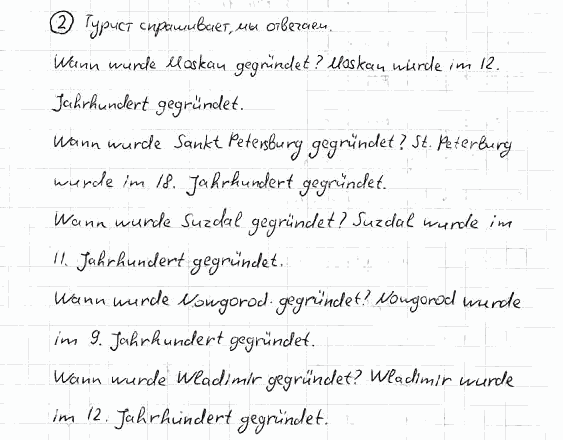 ② Турист спрашивает, мы отвечаем.
Wann wurde Moskau gegründet? Moskau wurde im 12.
Jahrhundert gegründet.
Wann wurde Sankt Petersburg gegründet? St. Peterburg
wurde im 18. Jahrhundert gegründet.
Wann wurde Suzdal gegründet? Suzdal wurde im
11. Jahrhundert gegründet.
Wann wurde Nowgorod gegründet? Nowgorod wurde
im 9. Jahrhundert gegründet.
Wann wurde Wladimir gegründet? Wladimir wurde
im 12. Jahrhundert gegründet.